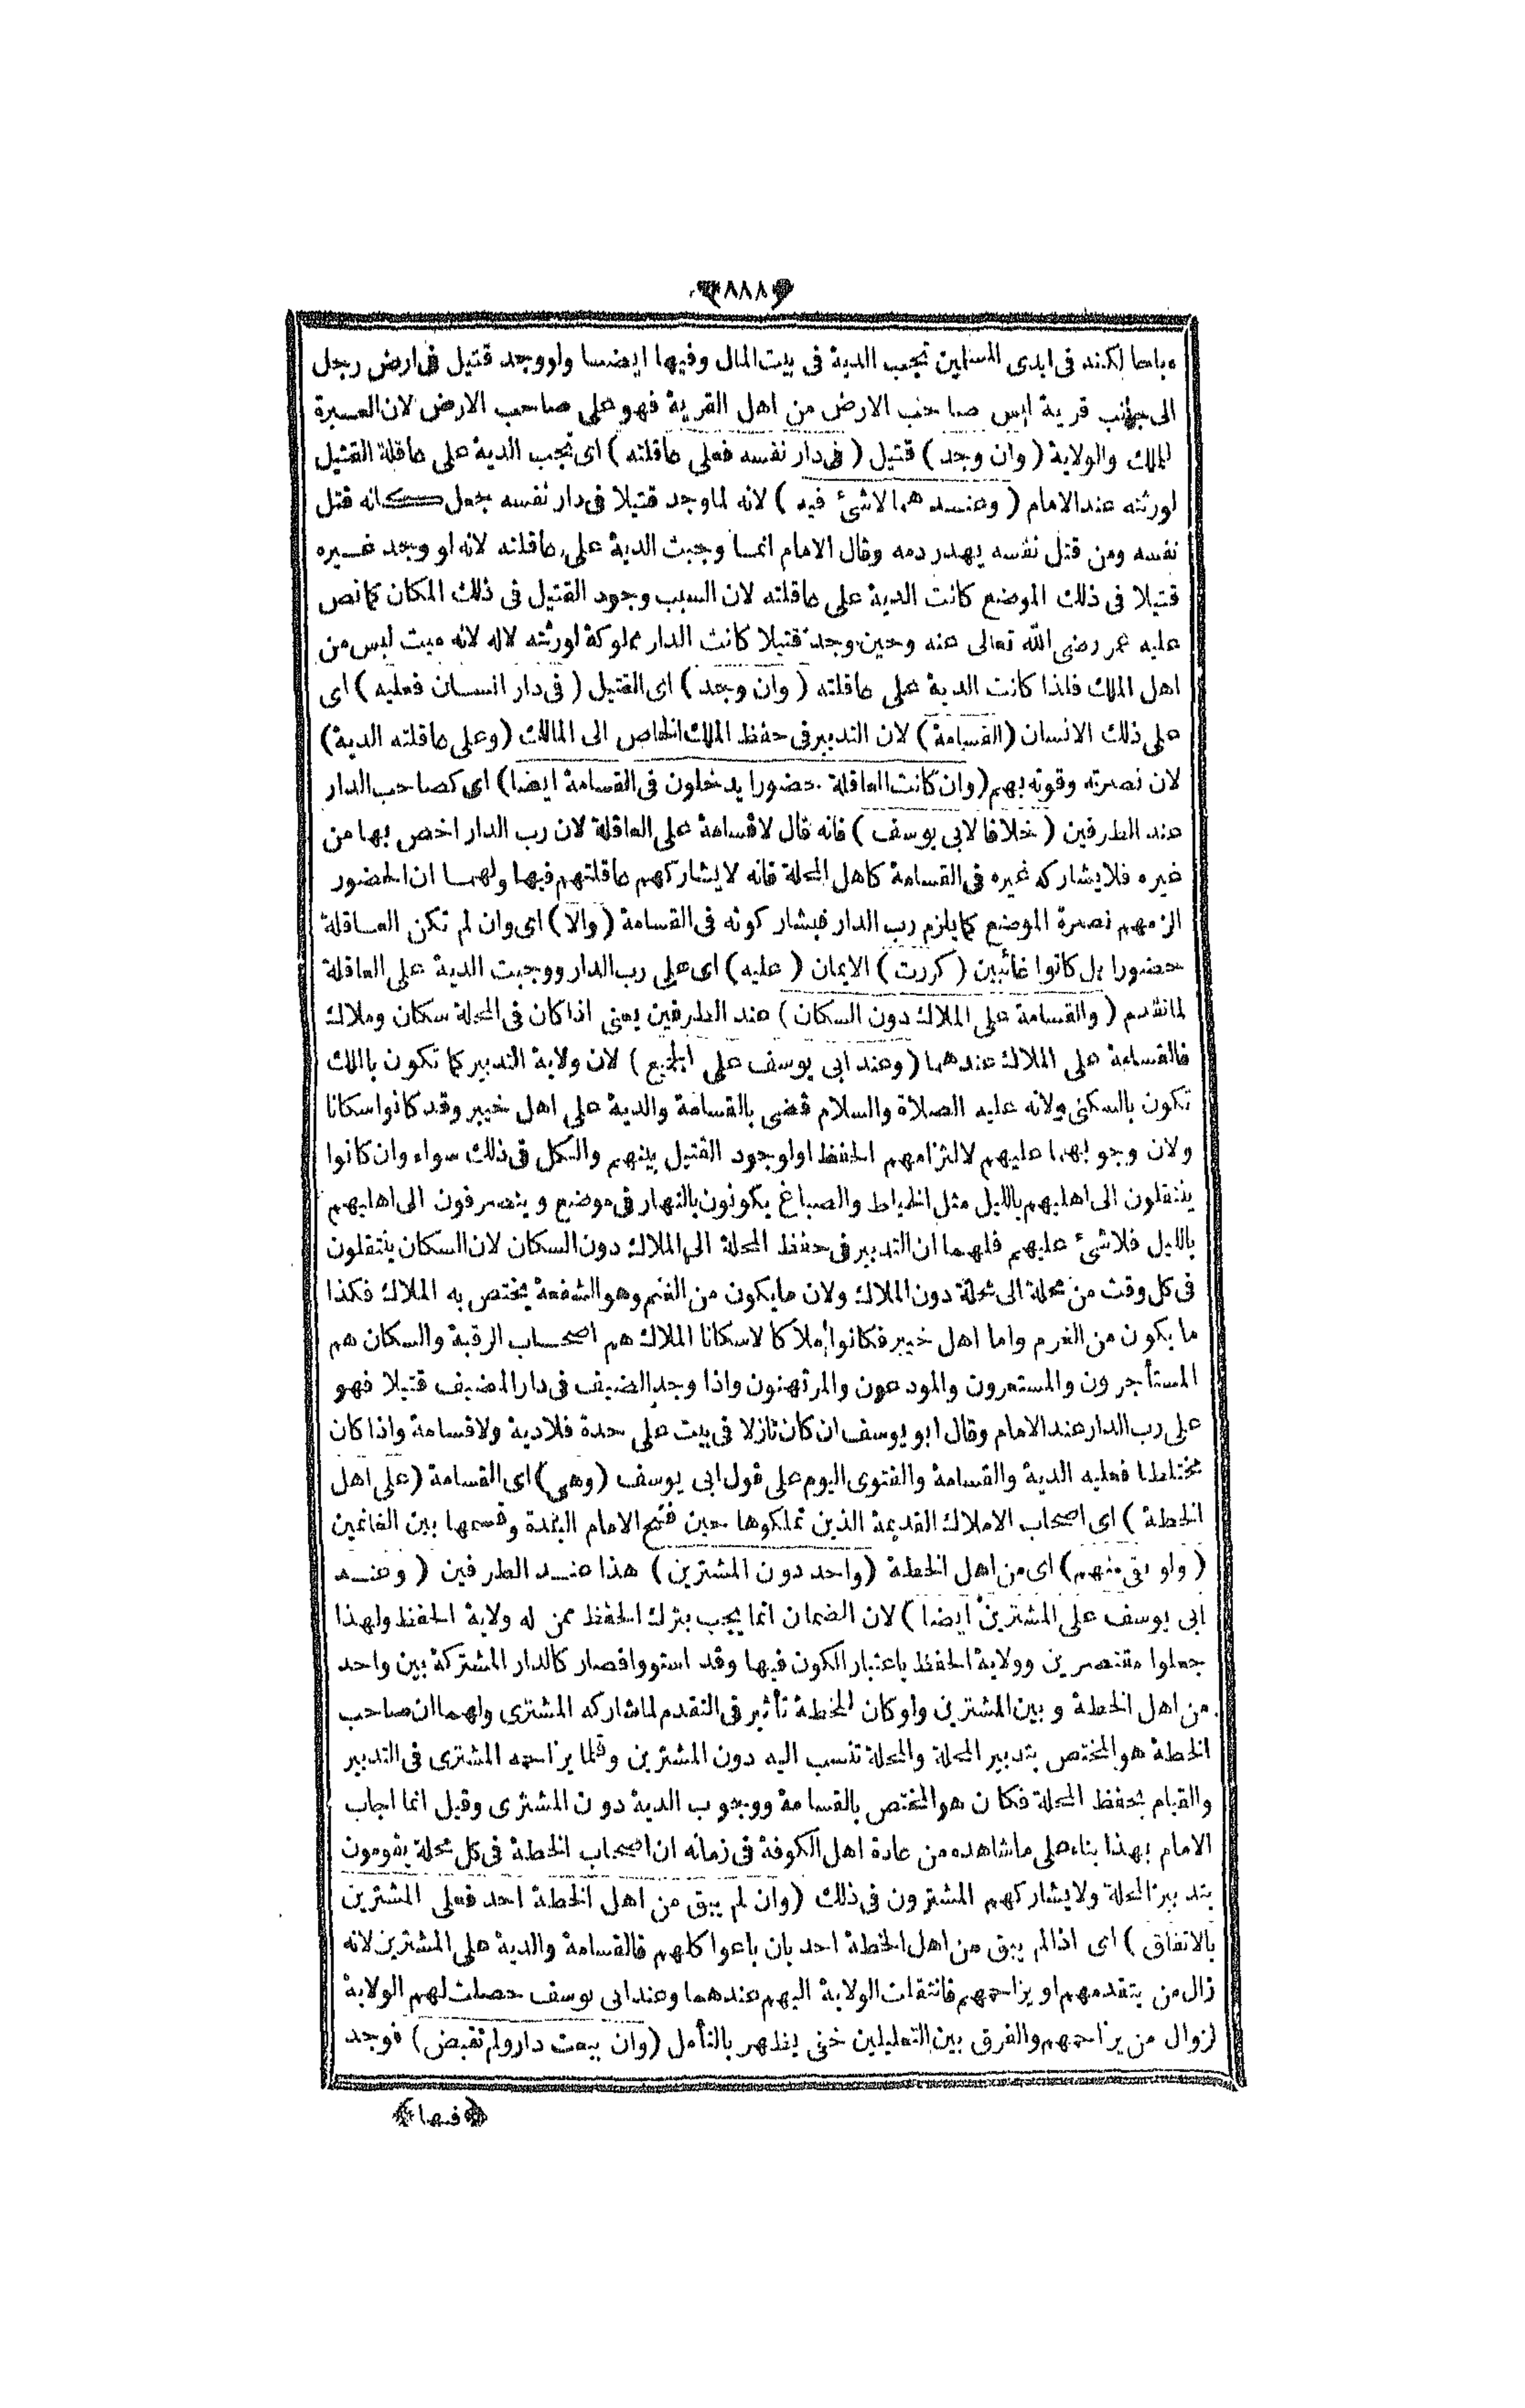 ﴿٨٨٨﴾
مباحا لكنه فى ايدى المسلمين تجب الدية فى بيت المال وفيها ايضا ولو وجد قتيل فى ارض رجل
الى جانب قرية ليس صاحب الارض من اهل القرية فهو على صاحب الارض لان العبرة
للملك والولاية (وان وجد) قتيل (فى دار نفسه فعلى عاقلته) اى تجب الدية على عاقلة القتيل
لورثته عند الامام (وعندهما لا شئ فيه) لانه لما وجد قتيلا فى دار نفسه جعل كانه قتل
نفسه ومن قتل نفسه يهدر دمه وقال الامام انما وجبت الدية على عاقلته لانه لو وجد غيره
قتيلا فى ذلك الموضع كانت الدية على عاقلته لان السبب وجود القتيل فى ذلك المكان كما نص
عليه عمر رضى الله تعالى عنه وحين وجد قتيلا كانت الدار مملوكة لورثته لاله لانه ميت ليس من
اهل الملك فلذا كانت الدية على عاقلته (وان وجد) اى القتيل (فى دار انسان فعليه) اى
على ذلك الانسان (القسامة) لان التدبير فى حفظ الملك الخاص الى المالك (وعلى عاقلته الدية)
لان نصرته وقوته بهم (وان كانت العاقلة حضورا يدخلون فى القسامة ايضا) اى كصاحب الدار
عند الطرفين (خلافا لابى يوسف) فانه قال لاقسامة على العاقلة لان رب الدار اخص بها من
غيره فلا يشاركه غيره فى القسامة كاهل المحلة فانه لا يشاركهم عاقلتهم فيها ولهما ان الحضور
الزمهم نصرة الموضع كما يلزم رب الدار فيشاركونه فى القسامة (والا) اى وان لم تكن العاقلة
حضورا بل كانوا غائبين (كررت) الايمان (عليه) اى على رب الدار ووجبت الدية على العاقلة
لما تقدم (والقسامة على الملاك دون السكان) عند الطرفين يعنى اذا كان فى المحلة سكان وملاك
فالقسامة على الملاك عندهما (وعند ابى يوسف على الجميع) لان ولاية التدبير كما تكون بالملك
تكون بالسكنى ولانه عليه الصلاة والسلام قضى بالقسامة والدية على اهل خيبر وقد كانوا سكانا
ولان وجوبهما عليهم لالتزامهم الحفظ اولوجود القتيل بينهم والكل فى ذلك سواء وان كانوا
ينتقلون الى اهليهم بالليل مثل الخياط والصباغ يكونون بالنهار فى موضع وينصرفون الى اهليهم
بالليل فلا شئ عليهم فلهما ان التدبير فى حفظ المحلة الى الملاك دون السكان لان السكان ينتقلون
فى كل وقت من محلة الى محلة دون الملاك ولان ما يكون من الغنم وهو الشفعة يختص به الملاك فكذا
ما يكون من الغرم واما اهل خيبر فكانوا ملاكا لاسكانا الملاك هم اصحاب الرقبة والسكان هم
المستأجرون والمستعيرون والمودعون والمرتهنون واذا وجد الضيف فى دار المضيف قتيلا فهو
على رب الدار عند الامام وقال ابو يوسف ان كان نازلا فى بيت على حدة فلا دية ولا قسامة واذا كان
مختلطا فعليه الدية والقسامة والفتوى اليوم على قول ابى يوسف (وهى) اى القسامة (على اهل
الخطة) اى اصحاب الاملاك القديمة الذين تملكوها حين فتح الامام البلدة وقسمها بين الغانمين
(ولو بقى منهم) اى من اهل الخطة (واحد دون المشترين) هذا عند الطرفين (وعند
ابى يوسف على المشترين ايضا) لان الضمان انما يجب بترك الحفظ ممن له ولاية الحفظ ولهذا
جعلوا مقتصرين وولاية الحفظ باعتبار الكون فيها وقد استووا فصار كالدار المشتركة بين واحد
من اهل الخطة وبين المشترين ولو كان للخطة تأثير فى التقدم لما شاركه المشترى ولهما ان صاحب
الخطة هو المختص بتدبير المحلة والمحلة تنسب اليه دون المشترين وقلما يزاحمه المشترى فى التدبير
والقيام بحفظ المحلة فكان هو المختص بالقسامة ووجوب الدية دون المشترى وقيل انما اجاب
الامام بهذا بناء على ما شاهده من عادة اهل الكوفة فى زمانه ان اصحاب الخطة فى كل محلة يقومون
بتدبير المحلة ولا يشاركهم المشترون فى ذلك (وان لم يبق من اهل الخطة احد فعلى المشترين
بالاتفاق) اى اذا لم يبق من اهل الخطة احد بان باعوا كلهم فالقسامة والدية على المشترين لانه
زال من يتقدمهم او يزاحمهم فانتقلت الولاية اليهم عندهما وعند ابى يوسف حصلت لهم الولاية
لزوال من يزاحمهم والفرق بين التعليلين خفى يظهر بالتأمل (وان بيعت دار ولم تقبض) فوجد
﴿فيها﴾